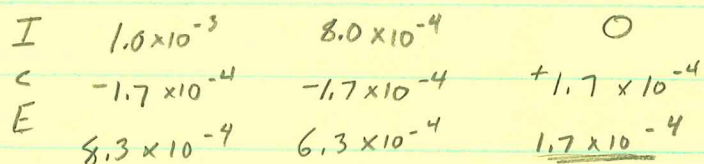 I 1.0 x10⁻³ 8.0 x10⁻⁴ 0
C -1.7 x10⁻⁴ -1.7 x10⁻⁴ +1.7 x 10⁻⁴
E 8.3 x 10⁻⁴ 6.3 x 10⁻⁴ 1.7 x 10⁻⁴